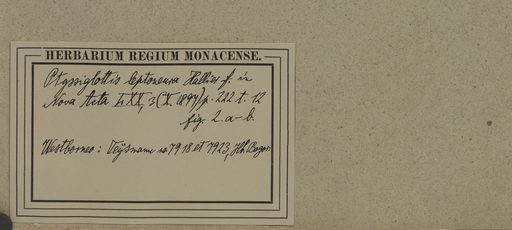 HERBARIUM REGIUM MONACENSE.
Ptyssiglottis leptoneura Hallier f. in
Nova Acta LXX, 3 (X. 1897) p. 222 t. 12
fig. 2. a-b.
Westborneo: Teijsmann no 7918 et 7923, Hb. Bogor.